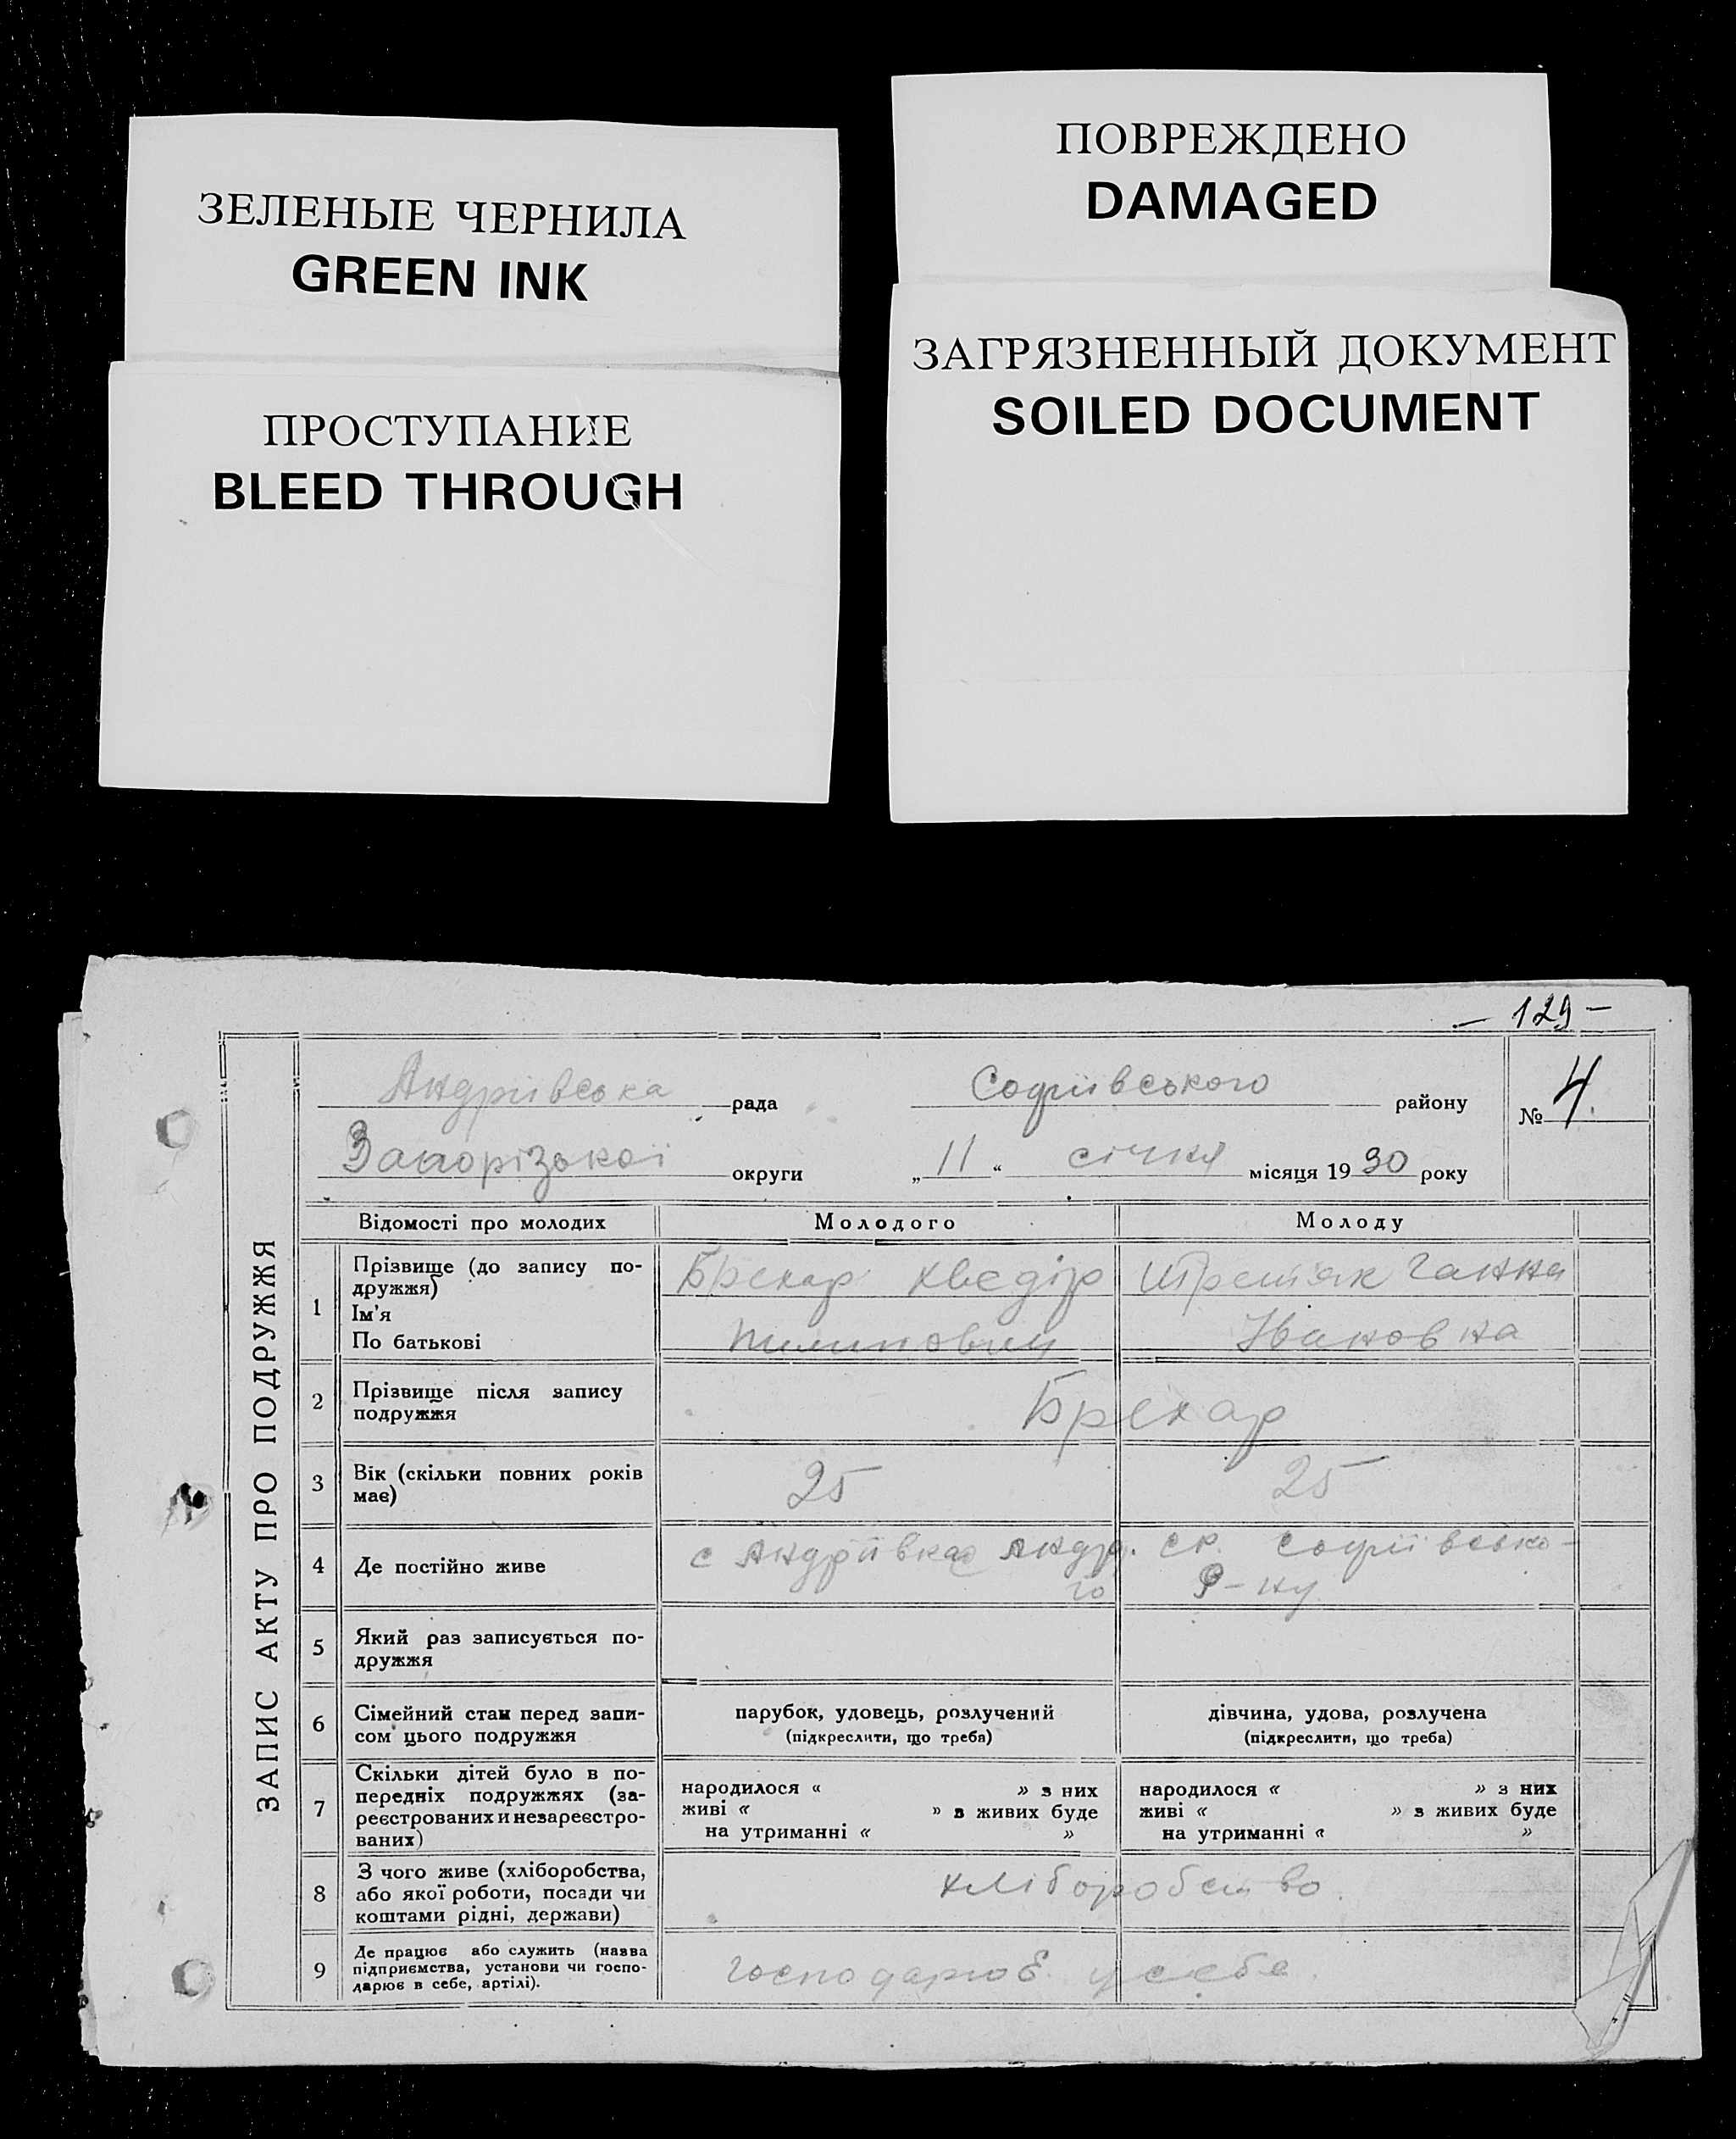 ПОВРЕЖДЕНО
DAMAGED
ЗЕЛЕНЫЕ ЧЕРНИЛА
GREEN INK
ЗАГРЯЗНЕННЫЙ ДОКУМЕНТ
SOILED DOCUMENT
ПРОСТУПАНИЕ
BLEED THROUGH
— 129 —
ЗАПИС АКТУ ПРО ПОДРУЖЖЯ
Андріівська рада Софіівського району № 4.
Запорізької округи „ 11 “ січня місяця 19 30 року
Відомості про молодих Молодого Молоду
1 Прізвище (до запису по-
дружжя)
Ім'я
По батькові
Брехар Хведір
Пилипович
Третяк Ганна
Івановна
2 Прізвище після запису
подружжя
Брехар
3 Вік (скільки повних років
має)
25 25
4 Де постійно живе
с Андріівка Андр. ср. Софіівсько-
го Р-ну
5 Який раз записується по-
дружжя
6 Сімейний стан перед запи-
сом цього подружжя
парубок, удовець, розлучений
(підкреслити, що треба)
дівчина, удова, розлучена
(підкреслити, що треба)
7 Скільки дітей було в по-
передніх подружжях (за-
реєстрованих и незареєстро-
ваних)
народилося « » з них
живі « » з живих буде
на утриманні « »
народилося « » з них
живі « » з живих буде
на утриманні « »
8 З чого живе (хліборобства,
або якої роботи, посади чи
коштами рідні, держави)
хліборобство.
9 Де працює або служить (назва
підприємства, установи чи госпо-
дарює в себе, артілі).
господарює у себе.